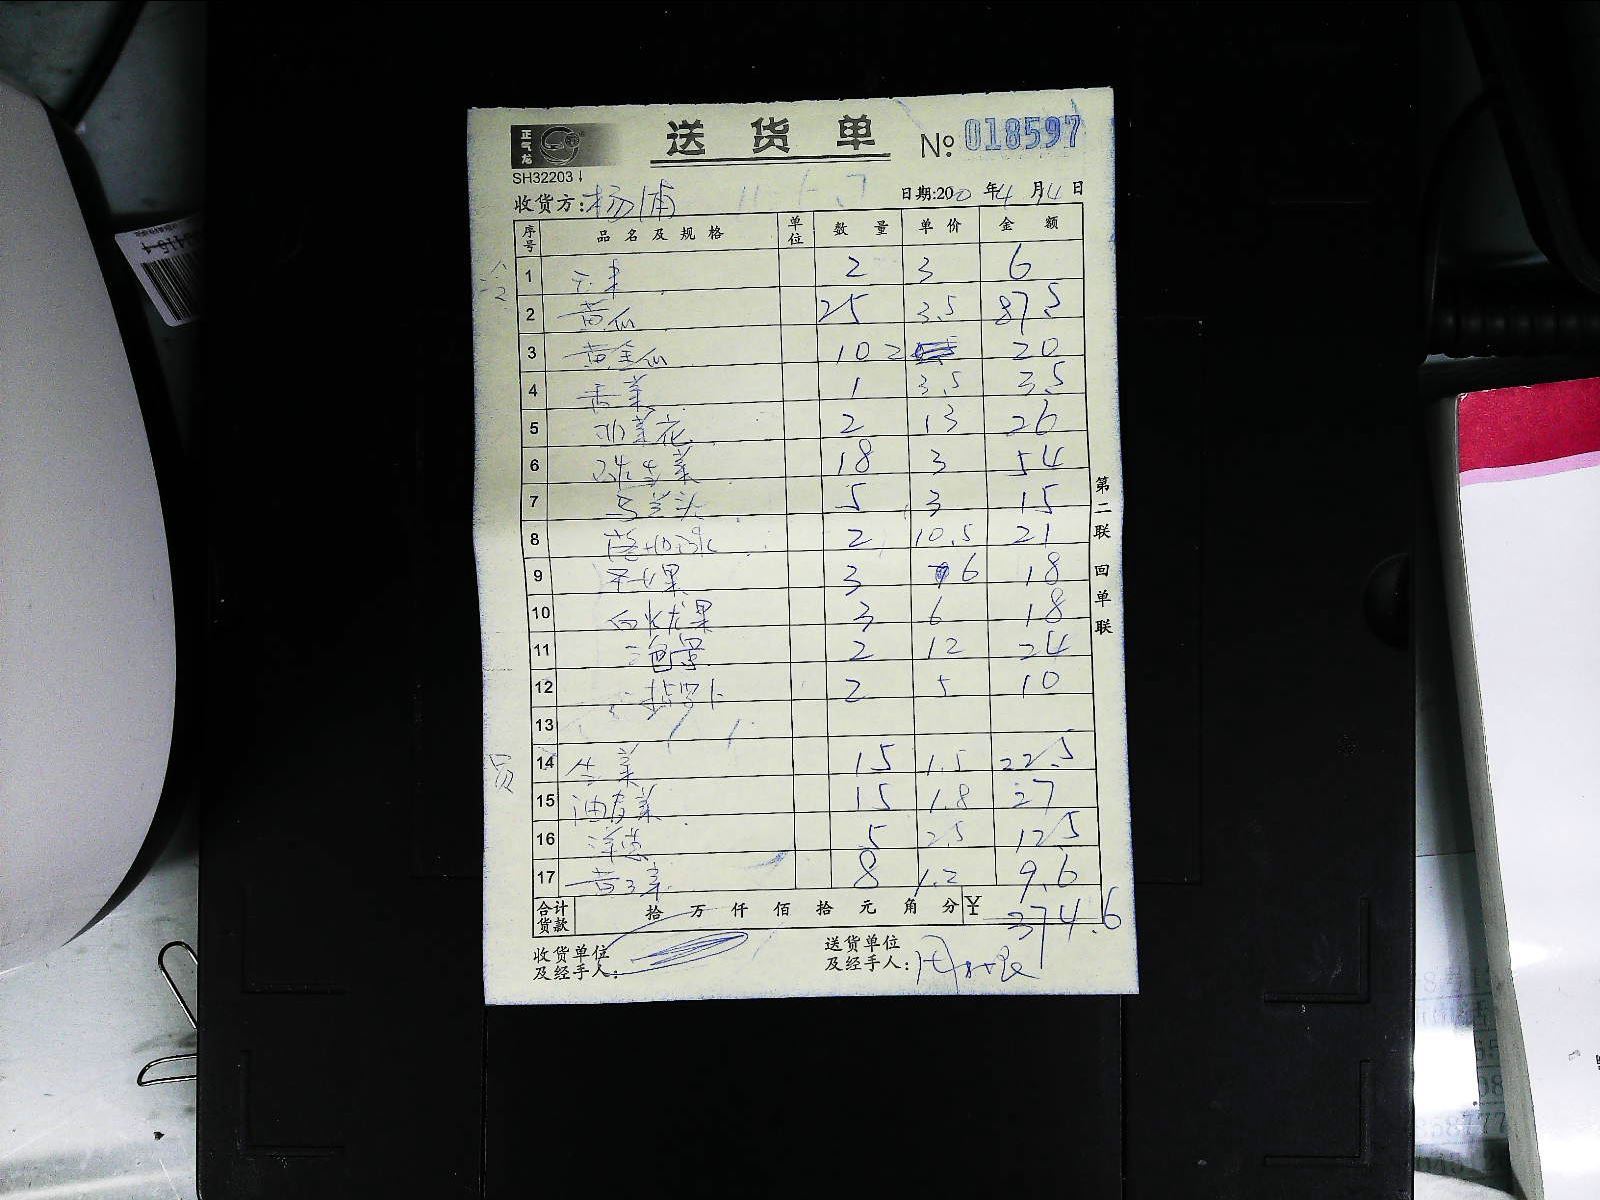 正气龙
送货单 No: 018597
SH32203
收货方: 杨浦 日期:200 年4月4日
序号 品名及规格 单位 数量 单价 金额
冷
1 2 3 6
2 黄瓜 25 3.5 87.5
3 黄金瓜 10 2 20
4 香菜 1 3.5 3.5
5 2 13 26
6 生菜 18 3 54
7 马兰头 5 3 15
8 2 10.5 21
9 3 6 18
10 白火龙果 3 6 18
11 2 12 24
12 2 5 10
13
员
14 生菜 15 1.5 22.5
15 油麦菜 15 1.8 27
16 洋葱 5 2.5 12.5
17 8 1.2 9.6
合计货款 拾 万 仟 佰 拾 元 角 分 ¥ 374.6
收货单位及经手人: 送货单位及经手人:
第二联 回单联